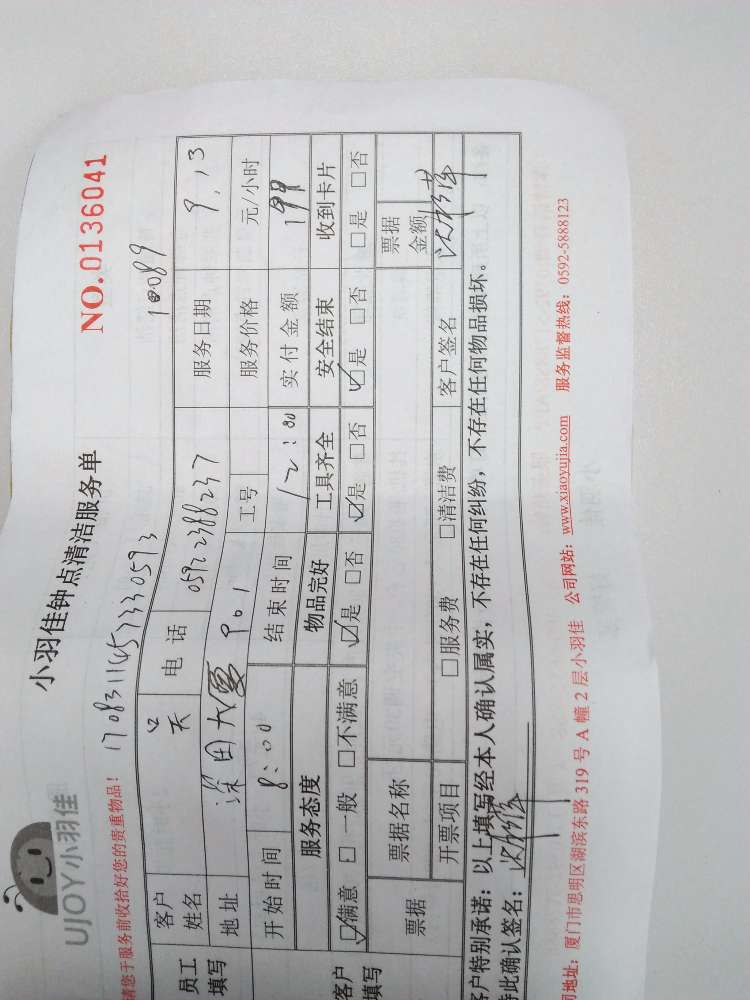 UJOY小羽佳
小羽佳钟点清洁服务单
NO.0136041
请您于服务前收拾好您的贵重物品！ 17083114573330593 10089
员工填写
客户姓名 吴 电话 0592 2388237 服务日期 9.13
地址 深田大厦 901 工号 服务价格 元/小时
开始时间 8:00 结束时间 12:00 实付金额 199
客户填写
服务态度 物品完好 工具齐全 安全结束 收到卡片
☑满意 □一般 □不满意 ☑是 □否 ☑是 □否 ☑是 □否 □是 □否
票据 票据名称 票据金额
开票项目 □服务费 □清洁费 客户签名
客户特别承诺：以上填写经本人确认属实，不存在任何纠纷，不存在任何物品损坏。
特此确认签名：
司地址：厦门市思明区湖滨东路 319 号 A 幢 2 层小羽佳 公司网站：www.xiaoyujia.com 服务监督热线：0592-5888123